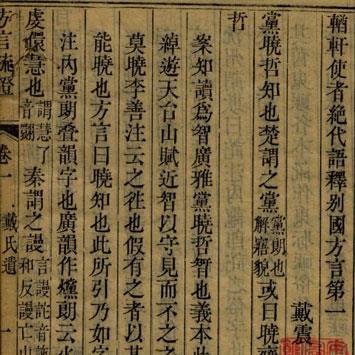 輶軒使者絕代語釋别國方言第一
戴震
黨曉哲知也楚謂之黨黨朗也解寤貌或曰曉
哲
案知讀爲智廣雅黨曉哲智也義本此
綽遊天台山賦近智以守見而不之之
莫曉李善注云之徃也假有之者以其
能曉也方言曰曉知也此所引乃如字
注內黨朗叠韻字也廣韻作爣朗云火
虔儇慧也謂慧了音翾秦謂之謾言謾詑音
和反謾亡山
方言疏證 卷一 戴氏遺